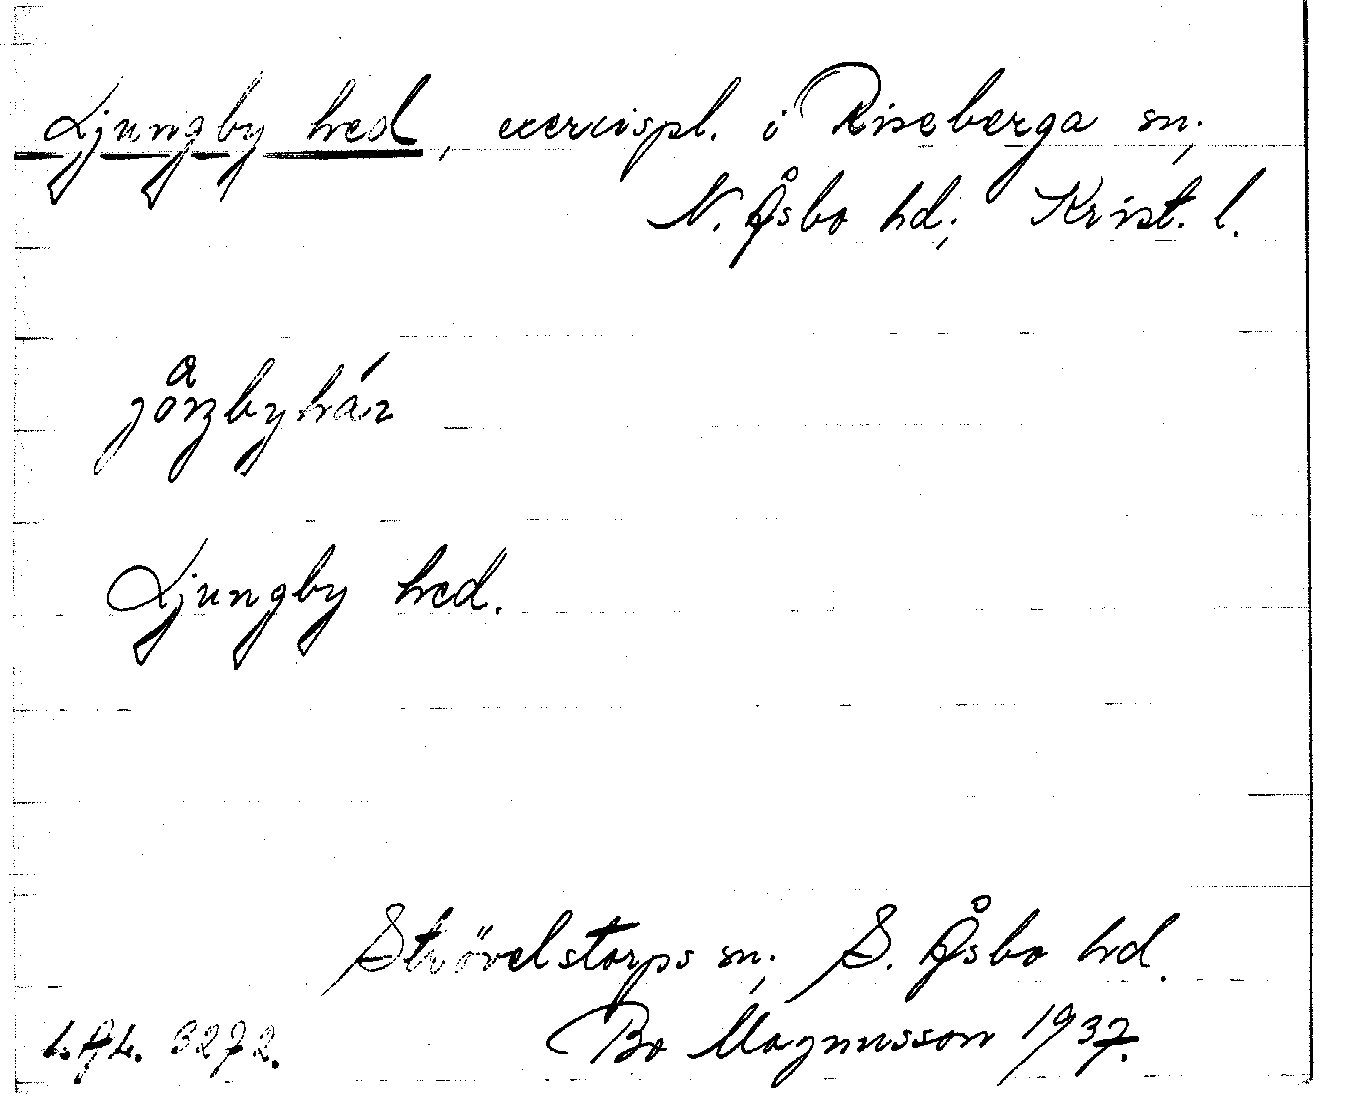 Ljungby hed, exercispl. i Riseberga sn;
N. Åsbo hd; Krist. l.
Ljungby hed.
Strövelstorps sn; S. Åsbo hd.
Bo Magnusson 1937.
L.A.L. 3272.